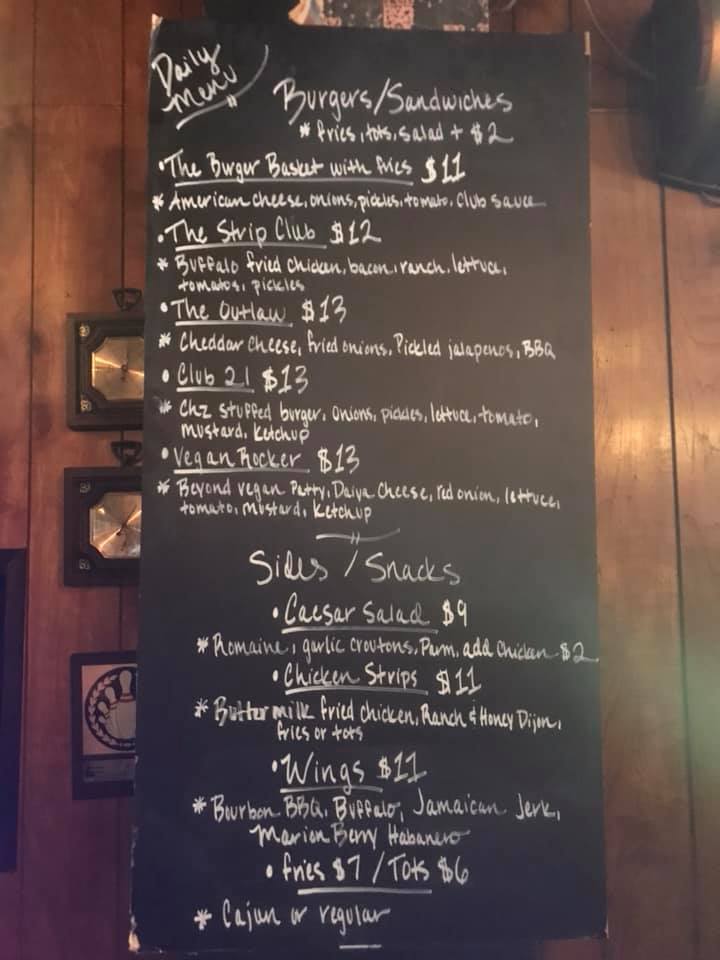 Daily
Menu
Burgers/Sandwiches
* fries, tots, salad + $2
• The Burger Basket with fries $11
* American cheese, onions, pickles, tomato, Club sauce
• The Strip Club $12
* Buffalo fried chicken, bacon, ranch, lettuce,
tomatos, pickles
• The Outlaw $13
* Cheddar Cheese, fried onions, Pickled jalapenos, BBQ
• Club 21 $13
* Chz stuffed burger, onions, pickles, lettuce, tomato,
mustard, Ketchup
• Vegan Rocker $13
* Beyond vegan Patty, Daiya Cheese, red onion, lettuce,
tomato, mustard, Ketchup
Sides / Snacks
• Caesar Salad $9
* Romaine, garlic croutons, Parm, add Chicken $2
• Chicken Strips $11
* Buttermilk fried chicken, Ranch & Honey Dijon,
fries or tots
• Wings $11
* Bourbon BBQ, Buffalo, Jamaican Jerk,
Marion Berry Habanero
• fries $7 / Tots $6
* Cajun or regular